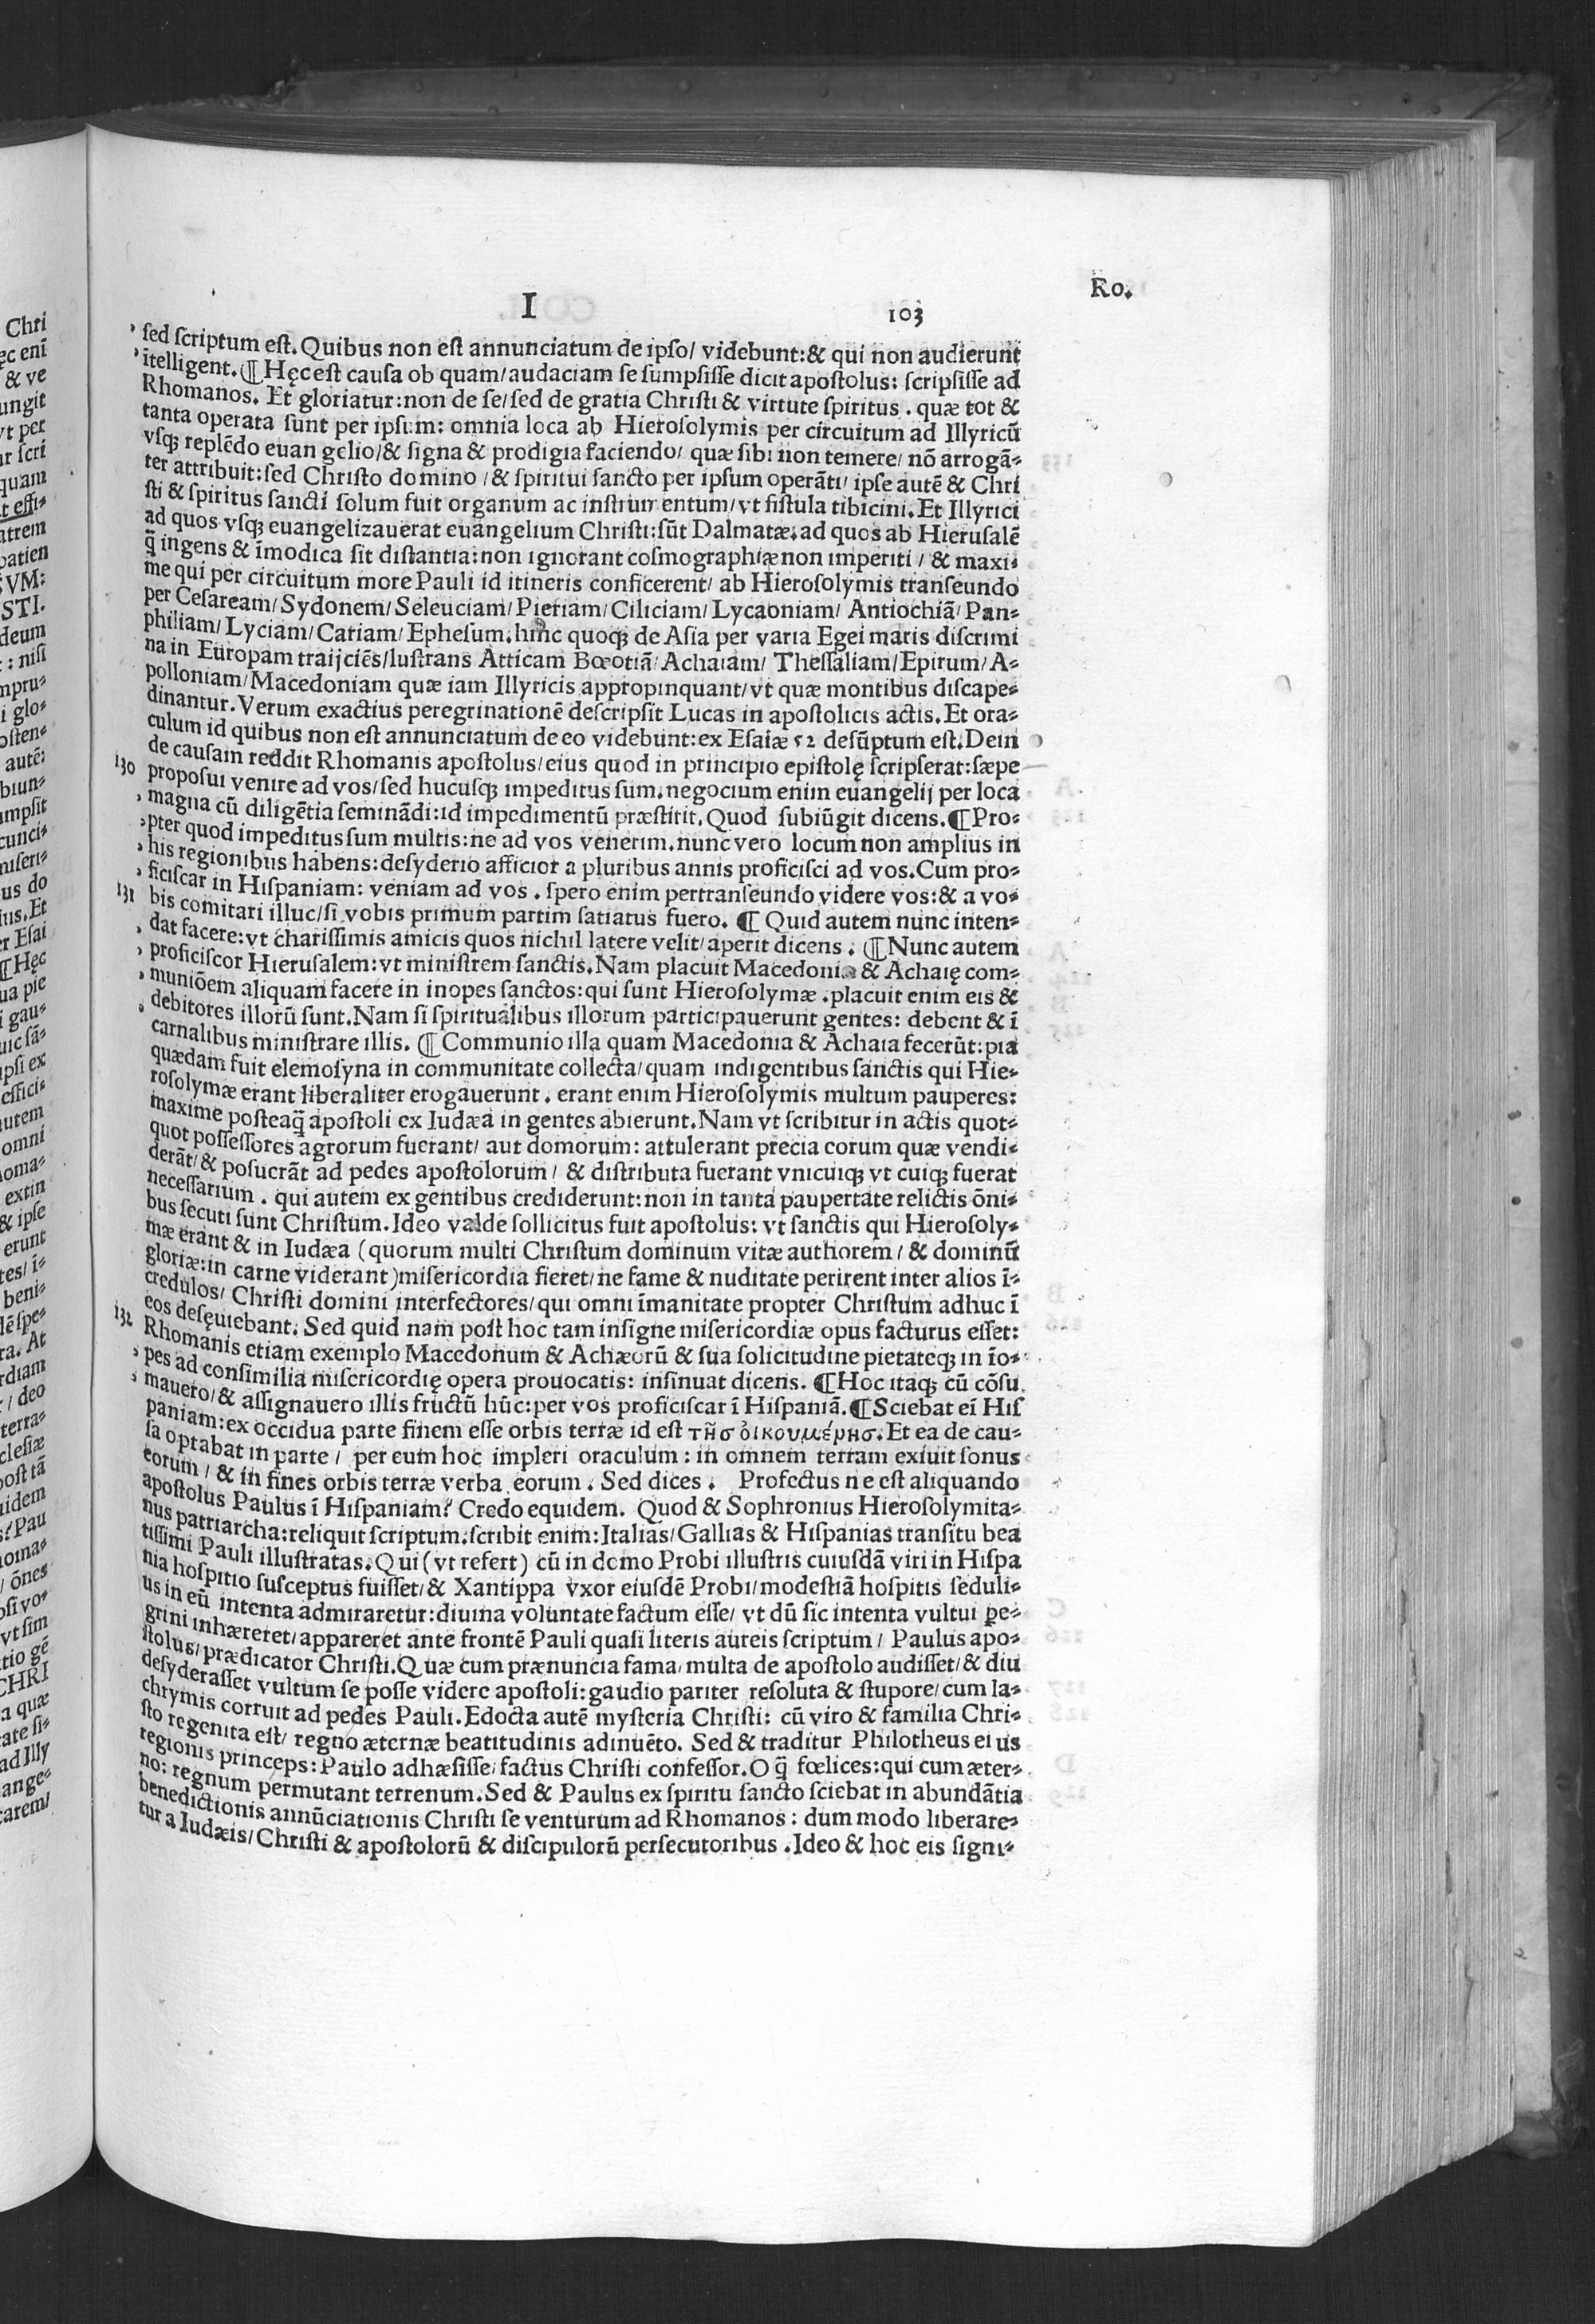 I 103 Ro.
sed scriptum est. Quibus non est annunciatum de ipso/ videbunt: & qui non audierunt
ītelligent. ¶ Hęc est causa ob quam/ audaciam se sumpsisse dicit apostolus: scripsisse ad
Rhomanos. Et gloriatur: non de se/ sed de gratia Christi & virtute spiritus. quæ tot &
tanta operata sunt per ipsum: omnia loca ab Hierosolymis per circuitum ad Illyricū
vsq; replēdo euan gelio/ & signa & prodigia faciendo/ quæ sibi non temere/ nō arrogā-
ter attribuit: sed Christo domino/ & spiritui sancto per ipsum operāti/ ipse autē & Chri
sti & spiritus sancti solum fuit organum ac instrumentum/ vt fistula tibicini. Et Illyrici
ad quos vsq; euangelizauerat euangelium Christi: sūt Dalmatæ. ad quos ab Hierusalē
q̄ ingens & īmodica sit distantia: non ignorant cosmographiæ non imperiti/ & maxi-
me qui per circuitum more Pauli id itineris conficerent/ ab Hierosolymis transeundo
per Cesaream/ Sydonem/ Seleuciam/ Pieriam/ Ciliciam/ Lycaoniam/ Antiochiā/ Pan-
philiam/ Lyciam/ Cariam/ Ephesum. hinc quoq; de Asia per varia Egei maris discrimi
na in Europam traijciēs/ lustrans Atticam Bœotiā/ Achaiam/ Thessaliam/ Epirum/ A-
polloniam/ Macedoniam quæ iam Illyricis appropinquant/ vt quæ montibus discape-
dinantur. Verum exactius peregrinationē descripsit Lucas in apostolicis actis. Et ora-
culum id quibus non est annunciatum de eo videbunt: ex Esaiæ 52 desūptum est. Dein
de causam reddit Rhomanis apostolus/ eius quod in principio epistolę scripserat: sæpe
130 proposui venire ad vos/ sed hucusq; impeditus sum. negocium enim euangelij per loca
magna cū diligētia seminādi: id impedimentū præstitit. Quod subiūgit dicens. ¶ Pro-
pter quod impeditus sum multis: ne ad vos venerim. nunc vero locum non amplius in
his regionibus habens: desyderio afficior a pluribus annis proficisci ad vos. Cum pro-
ficiscar in Hispaniam: veniam ad vos. spero enim pertranseundo videre vos: & a vo-
131 bis comitari illuc/ si vobis primum partim satiatus fuero. ¶ Quid autem nunc inten-
dat facere: vt charissimis amicis quos nichil latere velit/ aperit dicens. ¶ Nunc autem
proficiscor Hierusalem: vt ministrem sanctis. Nam placuit Macedonia & Achaię com-
muniōem aliquam facere in inopes sanctos: qui sunt Hierosolymæ. placuit enim eis &
debitores illorū sunt. Nam si spiritualibus illorum participauerunt gentes: debent & ī
carnalibus ministrare illis. ¶ Communio illa quam Macedonia & Achaia fecerūt: pia
quædam fuit elemosyna in communitate collecta/ quam indigentibus sanctis qui Hie-
rosolymæ erant liberaliter erogauerunt. erant enim Hierosolymis multum pauperes:
maxime posteaq̄ apostoli ex Iudæa in gentes abierunt. Nam vt scribitur in actis quot-
quot possessores agrorum fuerant/ aut domorum: attulerant precia eorum quæ vendi-
derāt/ & posuerāt ad pedes apostolorum/ & distributa fuerant vnicuiq; vt cuiq; fuerat
necessarium. qui autem ex gentibus crediderunt: non in tanta paupertate relictis ōni-
bus secuti sunt Christum. Ideo valde sollicitus fuit apostolus: vt sanctis qui Hierosoly-
mæ erant & in Iudæa (quorum multi Christum dominum vitæ authorem/ & dominū
gloriæ: in carne viderant) misericordia fieret/ ne fame & nuditate perirent inter alios ī-
credulos/ Christi domini interfectores/ qui omni īmanitate propter Christum adhuc ī
eos desęuiebant. Sed quid nam post hoc tam insigne misericordiæ opus facturus esset:
132 Rhomanis etiam exemplo Macedonum & Achæorū & sua solicitudine pietateq; in īo-
pes ad consimilia misericordię opera prouocatis: insinuat dicens. ¶ Hoc itaq; cū cōsu
mauero/ & assignauero illis fructū hūc: per vos proficiscar ī Hispaniā. ¶ Sciebat eī His
paniam: ex occidua parte finem esse orbis terræ id est τῆσ ὀικουμένησ. Et ea de cau-
sa optabat in parte/ per eum hoc impleri oraculum: in omnem terram exiuit sonus
eorum/ & in fines orbis terræ verba eorum. Sed dices. Profectus ne est aliquando
apostolus Paulus ī Hispaniam? Credo equidem. Quod & Sophronius Hierosolymita-
nus patriarcha: reliquit scriptum. scribit enim: Italias/ Gallias & Hispanias transitu bea
tissimi Pauli illustratas. Qui (vt refert) cū in domo Probi illustris cuiusdā viri in Hispa
nia hospitio susceptus fuisset/ & Xantippa vxor eiusdē Probi/ modestiā hospitis seduli-
us in eū intenta admiraretur: diuina voluntate factum esse/ vt dū sic intenta vultui pe-
grini inhæreret/ appareret ante frontē Pauli quasi literis aureis scriptum/ Paulus apo-
stolus/ prædicator Christi. Quæ cum prænuncia fama/ multa de apostolo audisset/ & diu
desyderasset vultum se posse videre apostoli: gaudio pariter resoluta & stupore/ cum la-
chrymis corruit ad pedes Pauli. Edocta autē mysteria Christi: cū viro & familia Chri-
sto regenita est/ regno æternæ beatitudinis adinuēto. Sed & traditur Philotheus eius
regionis princeps: Paulo adhæsisse/ factus Christi confessor. O q̄ fœlices: qui cum æter-
no: regnum permutant terrenum. Sed & Paulus ex spiritu sancto sciebat in abundātia
benedictionis annūciationis Christi se venturum ad Rhomanos: dum modo liberare-
tur a Iudæis/ Christi & apostolorū & discipulorū persecutoribus. Ideo & hoc eis signi-